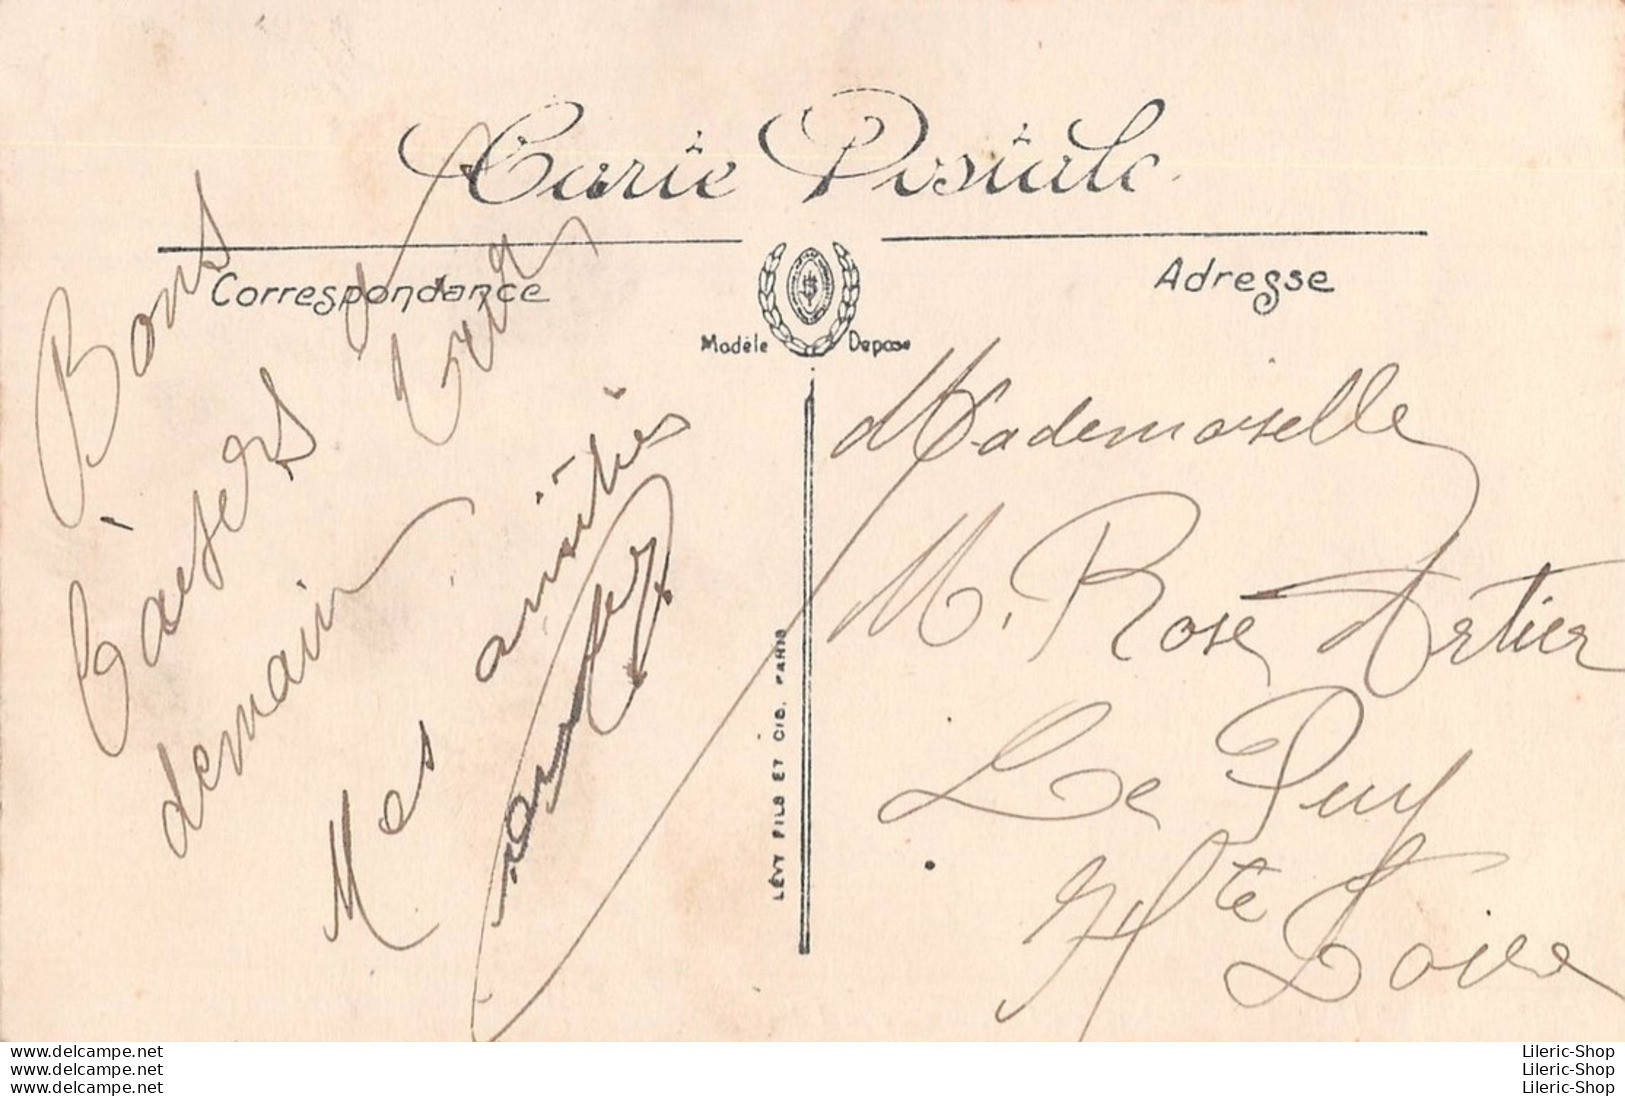 Carte Postale
Correspondance
Adresse
Modèle Déposé
LÉVY FILS ET CIE. PARIS
Bons
baisers
demain
Mes amitiés
Mademoiselle
M. Rose Artier
Le Puy
Hte Loire
www.delcampe.net
www.delcampe.net
www.delcampe.net
Lileric-Shop
Lileric-Shop
Lileric-Shop